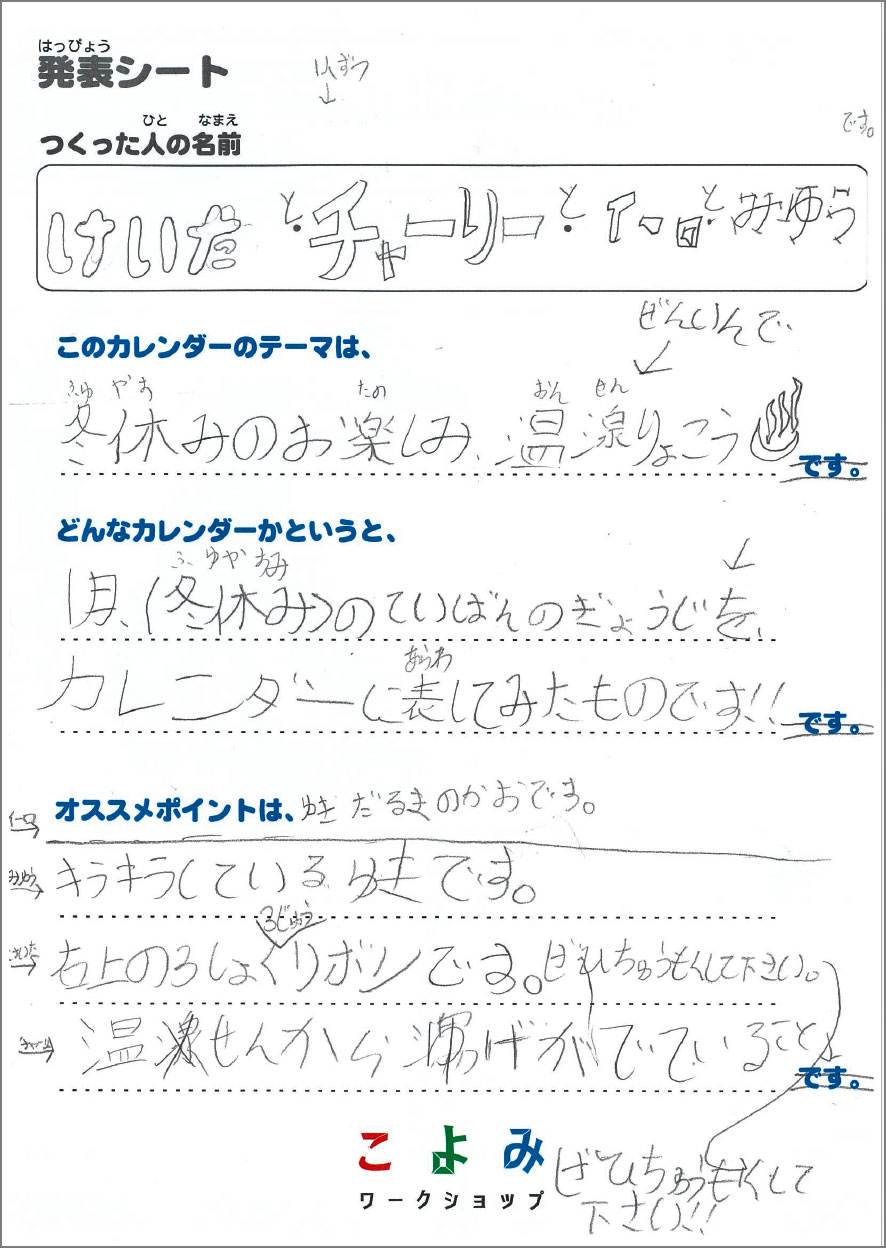 はっぴょう
発表シート
1人ずつ
↓
ひと なまえ
つくった人の名前
です。
けいた と・チャーリー と・イーロ と・みゆう
このカレンダーのテーマは、
ぜんいんで
ふゆ やす たの おん せん
冬休みのお楽しみ、温泉りょこう♨
です。
どんなカレンダーかというと、
ふゆやすみ
1月、(冬休み)のていばんのぎょうじを、
あらわ
カレンダーに表してみたものです!!
です。
オススメポイントは、ゆきだるまのかおです。
イーロ
みゆう
キラキラしている ゆきです。
3じゅう
けいた
右上の3しょくリボンです。ぜひちゅうもくして下さい。
チャーリー
温 せんから ゆげがでていること
です。
こよみ
ワークショップ
ぜひちゅうもくして
下さい!!